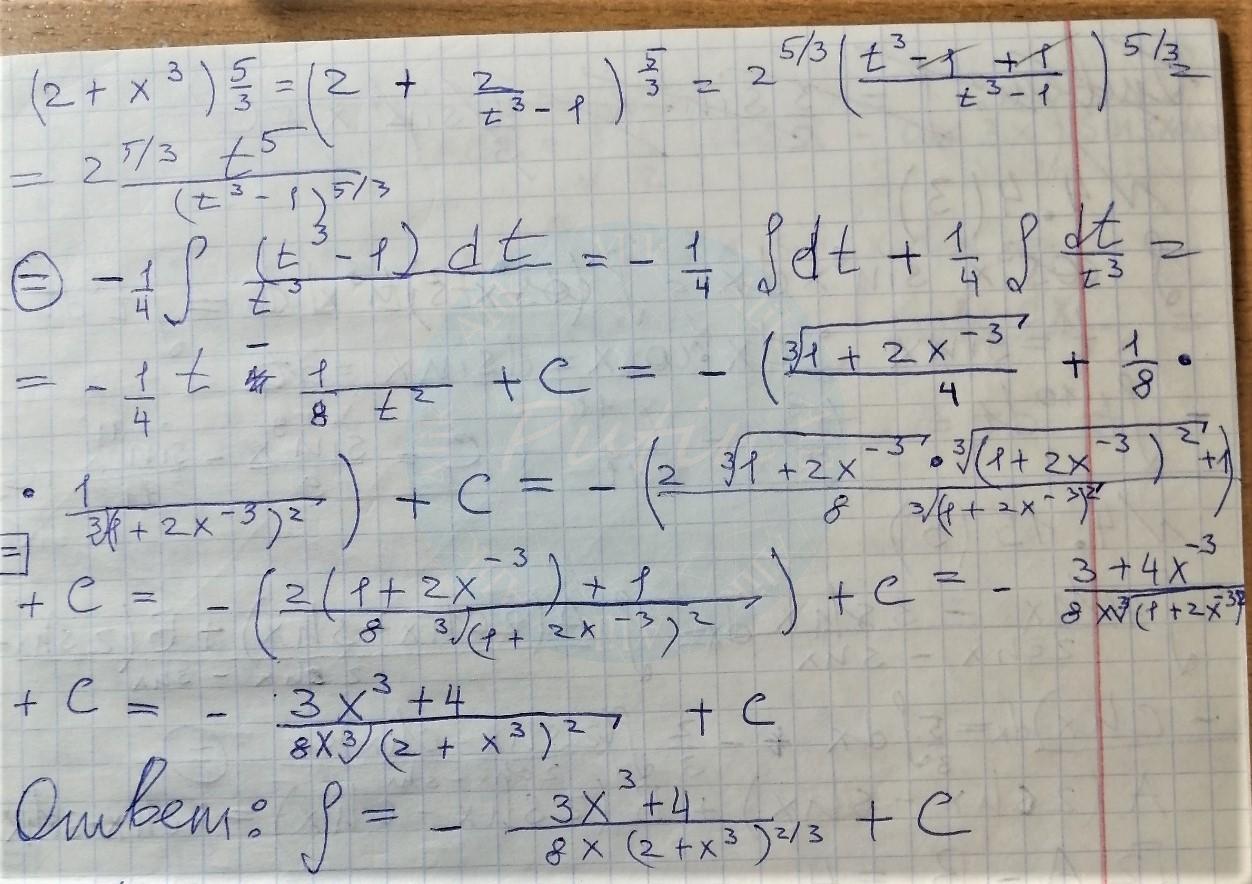 (2 + x³)^{5/3} = (2 + 2/(t³ - 1))^{5/3} = 2^{5/3} ((t³ - 1 + 1)/(t³ - 1))^{5/3} =
= 2^{5/3} t⁵/(t³ - 1)^{5/3}
⊜ - 1/4 ∫ (t³ - 1) dt/t³ = - 1/4 ∫ dt + 1/4 ∫ dt/t³ =
= - 1/4 t - 1/(8 t²) + C = - (∛(1 + 2x⁻³)/4 + 1/8 ·
· 1/∛(1 + 2x⁻³)²) + C = - ((2 ∛(1 + 2x⁻³) · ∛((1 + 2x⁻³)²) + 1)/(8 ∛(1 + 2x⁻³)²))
+ C = - ((2(1 + 2x⁻³) + 1)/(8 ∛(1 + 2x⁻³)²)) + C = - (3 + 4x⁻³)/(8 ∛(1 + 2x⁻³)²)
+ C = - (3x³ + 4)/(8x ∛(2 + x³)²) + C
Ответ: ∫ = - (3x³ + 4)/(8x (2 + x³)^{2/3}) + C